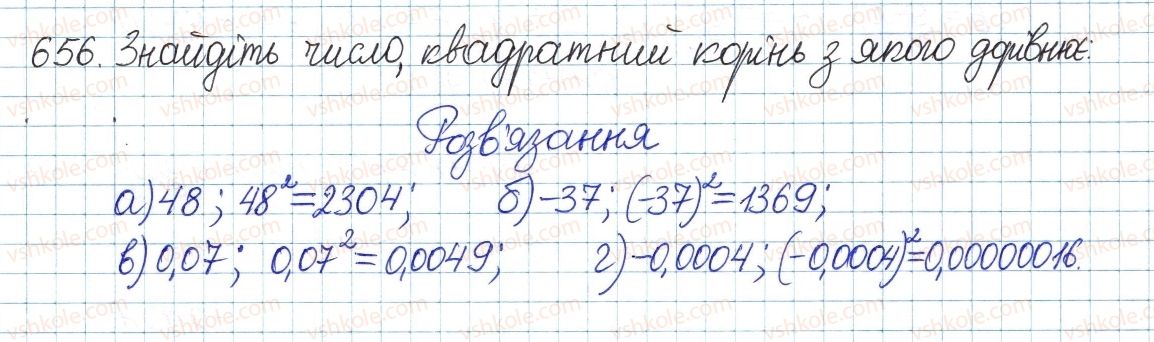 656. Знайдіть число, квадратний корінь з якого дорівнює:
Розв'язання
а) 48; 48²=2304; б) -37; (-37)²=1369;
в) 0,07; 0,07²=0,0049; г) -0,0004; (-0,0004)²=0,00000016.